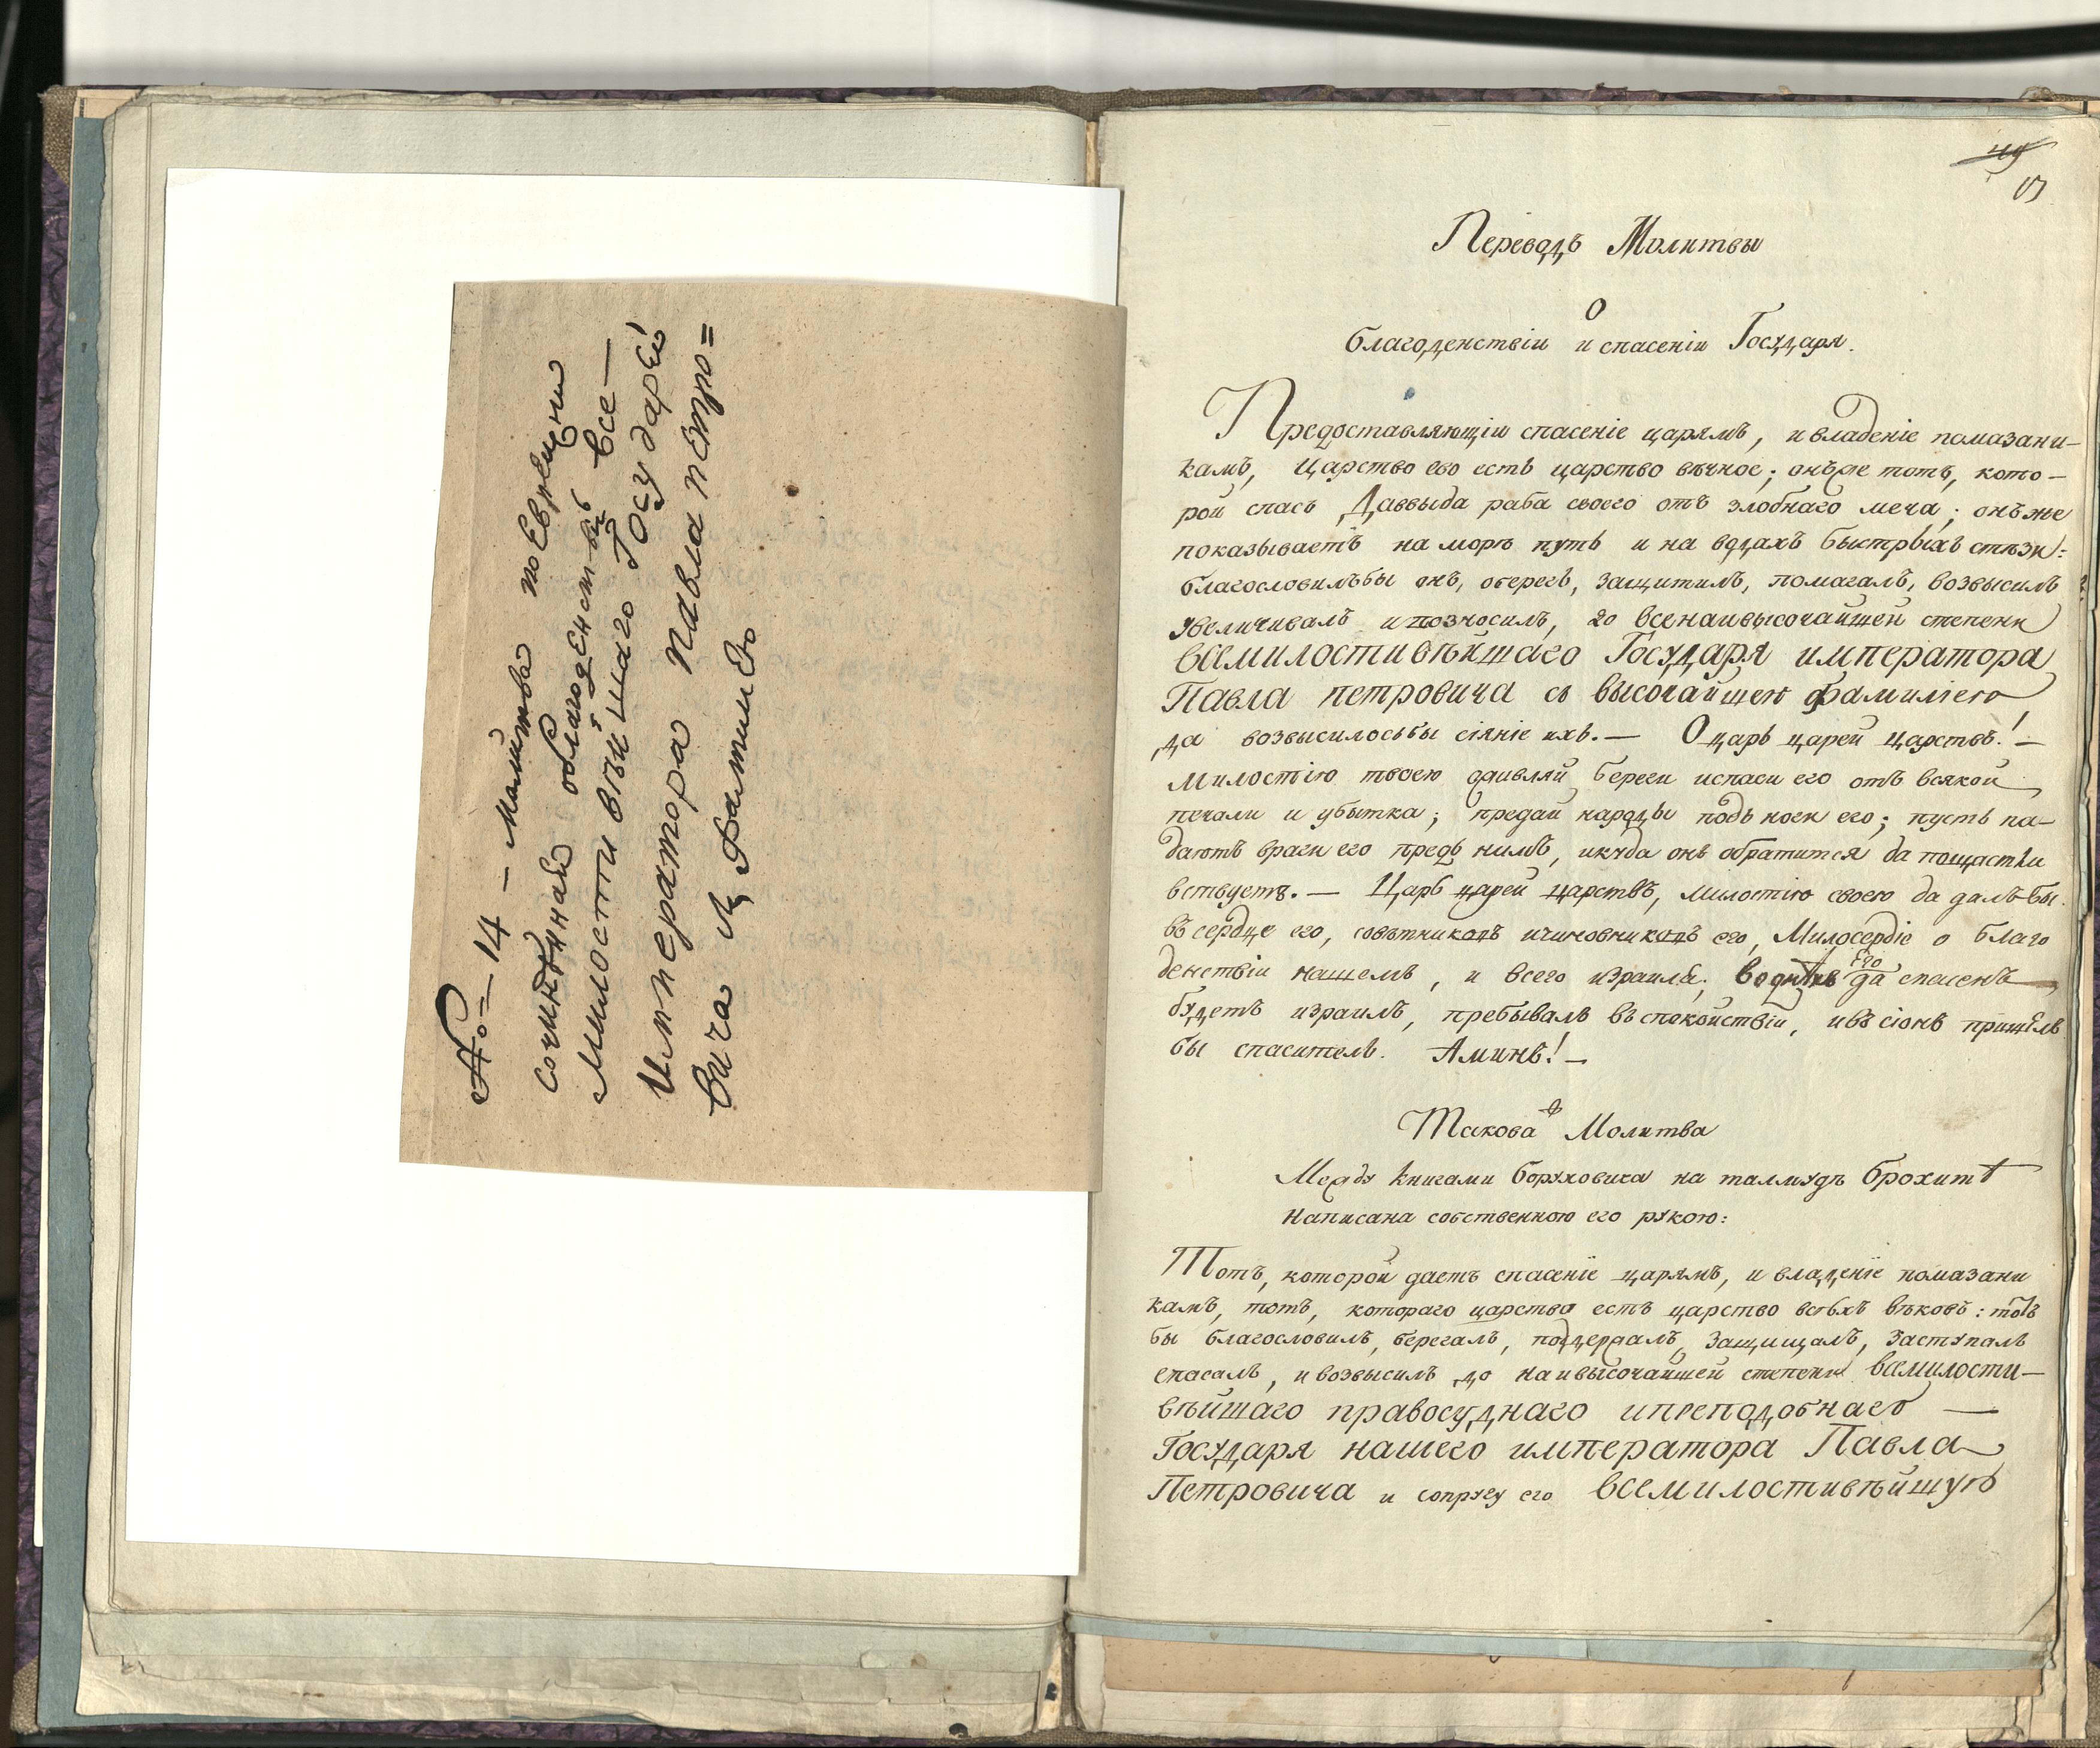 № 14 – молитва по Еврейски
сочиненная облагоденствiи все—
милостивѣйшаго Государя
Императора Павла петро=
вича и фамилiю
49
Переводъ Молитвы
О
благоденствiи и спасенiи Государя.
Предоставляющiи спасенiе царямъ, и владенiе помазани—
камъ, Царство его есть царство вѣчное; онъже тотъ, кото—
рой спасъ Даввыда раба своего отъ злобнаго меча; онъ же
показываетъ на морѣ путь и на водахъ быстрыхъ стѣзи:
благословилъбы онъ, оберегъ, защитилъ, помагалъ, возвысилъ
увеличивалъ и возносилъ, до всенаивысочайшей степени
всемилостивѣйшаго Государя императора
Павла петровича съ высочайшею фамилiею
да возвысилосьбы сiянiе ихъ. — О царь царей царствъ! —
милостiю твоею оживляй береги испаси его отъ всякой
печали и убытка; предай народы подъ ноги его; пусть па—
даютъ враги его предъ нимъ, икуда онъ обратится да пощастли
вствуетъ. — Царь царей царствъ, милостiю своею да далъ бы
въ сердце его, совѣтниковъ ичиновниковъ его, Милосердiе о благо
денствiи нашемъ, и всего израиля; во дни Его да спасенъ
будетъ израиль, пребывалъ въ спокойствiи, ивъ сiонъ пришелъ
бы спаситель. Аминь! —
Такова Молитва
Между книгами Боруховича на талмудѣ брохитъ
написана собственною его рукою:
Тотъ, которой даетъ спасенiе царямъ, и владенiе помазани
камъ, тотъ, котораго царство есть царство всѣхъ вѣковъ: тотъ
бы благословилъ, берегалъ, поддержалъ, защищалъ, заступалъ
спасалъ, и возвысилъ до наивысочайшей степени всемилости—
вѣйшаго правосуднаго ипреподобнаго —
Государя нашего императора Павла
Петровича и супругу его всемилостивѣйшую